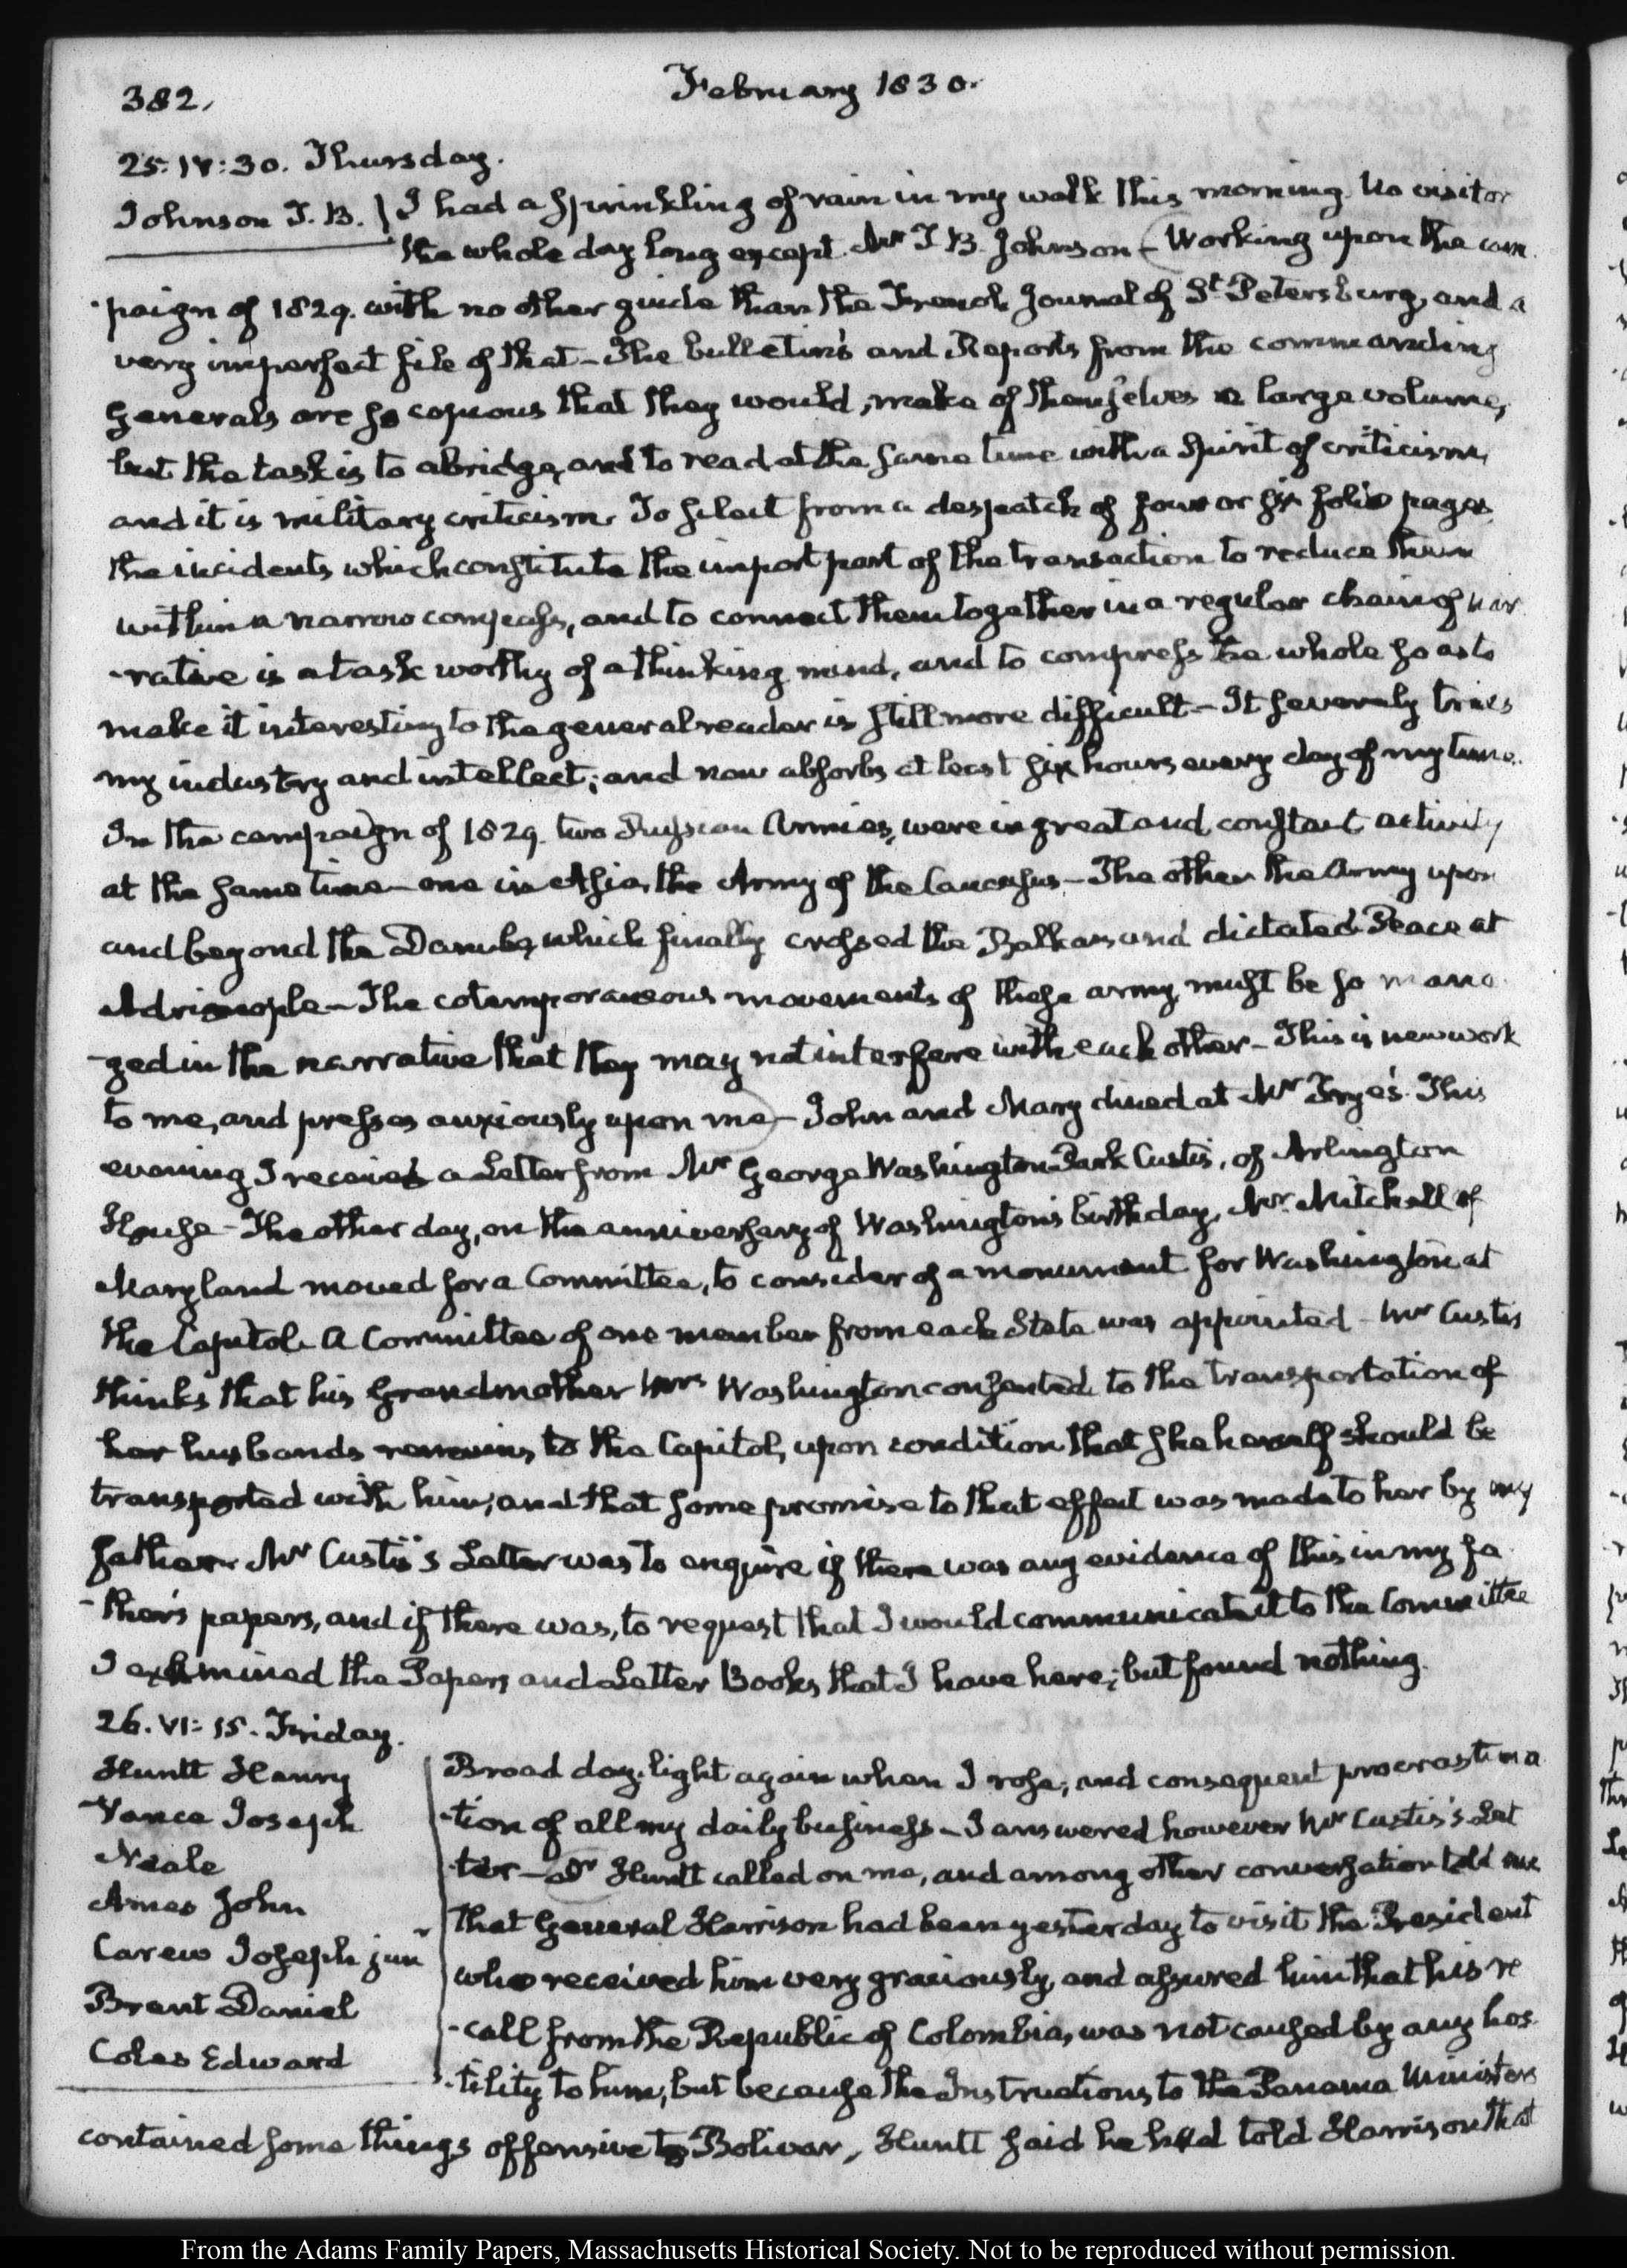 382.
February 1830.
25. IV:30. Thursday.
Johnson J. B. } I had a sprinkling of rain in my walk this morning. No visitor
the whole day long except Mr J B. Johnson — Working upon the cam
-paign of 1829. with no other guide than the French Journal of St. Petersburg, and a
very imperfect file of that — The bulletin's and Reports from the commanding
Generals are so copious that they would, make of themselves a large volume,
but the task is to abridge, and to read at the same time with a spirit of criticism,
and it is military criticism. To select from a despatch of four or six folio pages
the incidents which constitute the import part of the transaction to reduce them
within a narrow compass, and to connect them together in a regular chain of nar
-rative is a task worthy of a thinking mind, and to compress the whole so as to
make it interesting to the general reader is still more difficult — It severely tries
my industry and intellect; and now absorbs at least six hours every day of my time.
In the campaign of 1829. two Russian Armies, were in great and constant activity
at the same time — one in Asia, the Army of the Caucasus — The other the Army upon
and beyond the Danube, which finally crossed the Balkans and dictated Peace at
Adrianople — The cotemporaneous movements of these army must be so mana
-ged in the narrative that they may not interfere with each other — This is new work
to me, and presses anxiously upon me — John and Mary dined at Mr Frye's. This
evening I received a Letter from Mr George Washington Park Custis, of Arlington
House — The other day, on the anniversary of Washington's birth day, Mr. Mitchell of
Maryland moved for a Committee, to consider of a monument for Washington at
the Capitol. A Committee of one member from each State was appointed — Mr Custis
thinks that his Grandmother Mrs Washington consented to the transportation of
her husbands remains to the Capitol, upon condition that she herself should be
transported with him; and that some promise to that effect was made to her by my
father. Mr Custis's Letter was to enquire if there was any evidence of this in my fa
-ther's papers, and if there was, to request that I would communicate it to the Committee
I examined the Papers and Letter Books that I have here; but found nothing.
26. VI:15. Friday.
Huntt Henry
Vance Joseph
Neale
Ames John
Carew Joseph jun
Brent Daniel
Coles Edward
Broad day-light again when I rose; and consequent procrastina
-tion of all my daily business — I answered however Mr Custis's Let
-ter — Dr Huntt called on me, and among other conversation told me
that General Harrison had been yesterday to visit the President
who received him very graciously, and assured him that his re
-call from the Republic of Colombia, was not caused by any hos
-tility to him; but because the Instructions to the Panama Ministers
contained some things offensive to Bolivar, Huntt said he had told Harrison that
From the Adams Family Papers, Massachusetts Historical Society. Not to be reproduced without permission.